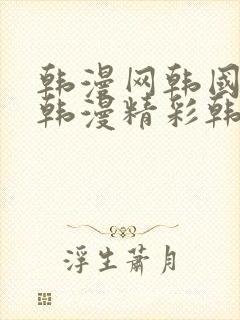 韩漫网韩国
韩漫精彩韩
浮生萧月